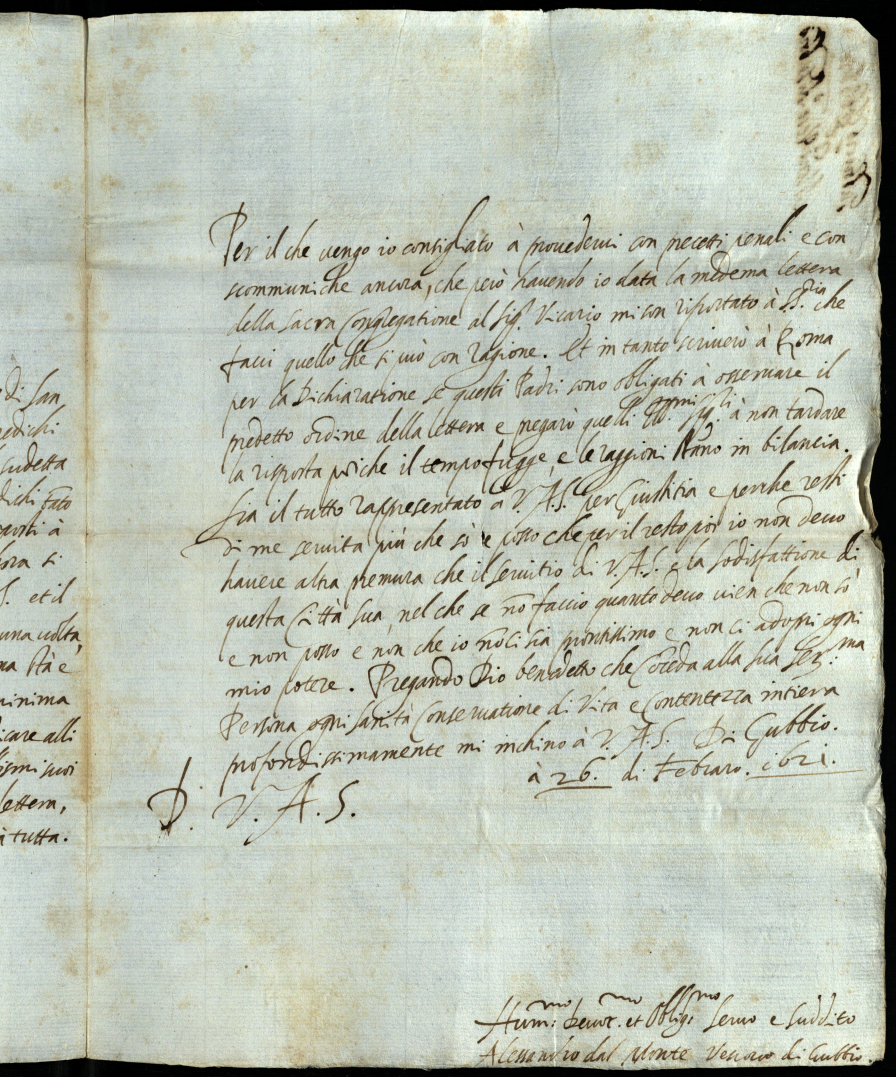 di San
medichi
sudetta
dichi fato
à
ora si
S. et il
una volta,
na stà e
minima
icare alli
suoi
lettera,
tutta.
Per il che vengo io consigliato à provedervi con precetti penali e con
scommuniche ancora, che però havendo io data la medema lettera
della Sacra Congregatione al Sig.r Vicario mi son riportato à S.S.ria che
facci quello che si può con ragione. Et in tanto scriverò à Roma
per la Dichiaratione se questi Padri sono obligati à osservare il
predetto ordine della lettera e pregarò quelli Ill.mi Sig.ri à non tardare
la risposta poiche il tempo fugge, e le raggioni stano in bilancia.
Sia il tutto rappresentato à V. A. S. per Giustitia e perche resti
di me servita più che sò e posso che per il resto poi io non devo
havere altra premura che il servitio di V. A. S. e la sodisfattione di
questa Città sua, nel che se nō faccio quanto devo vien che non sò
e non posso e non che io nō ci sia prontissimo e non ci adopri ogni
mio potere. Pregando Dio benedetto che Cōceda alla sua Ser:ma
Persona ogni sanità Conservatione di Vita e Contentezza intiera
profondissimamente mi inchino à V. A. S. Di Gubbio.
à 26. di Febraro. 1621.
D. V. A. S.
Hum:mo Devot.mo et Oblig:mo Servo e Suddito
Alessandro dal Monte Vescovo di Gubbio.